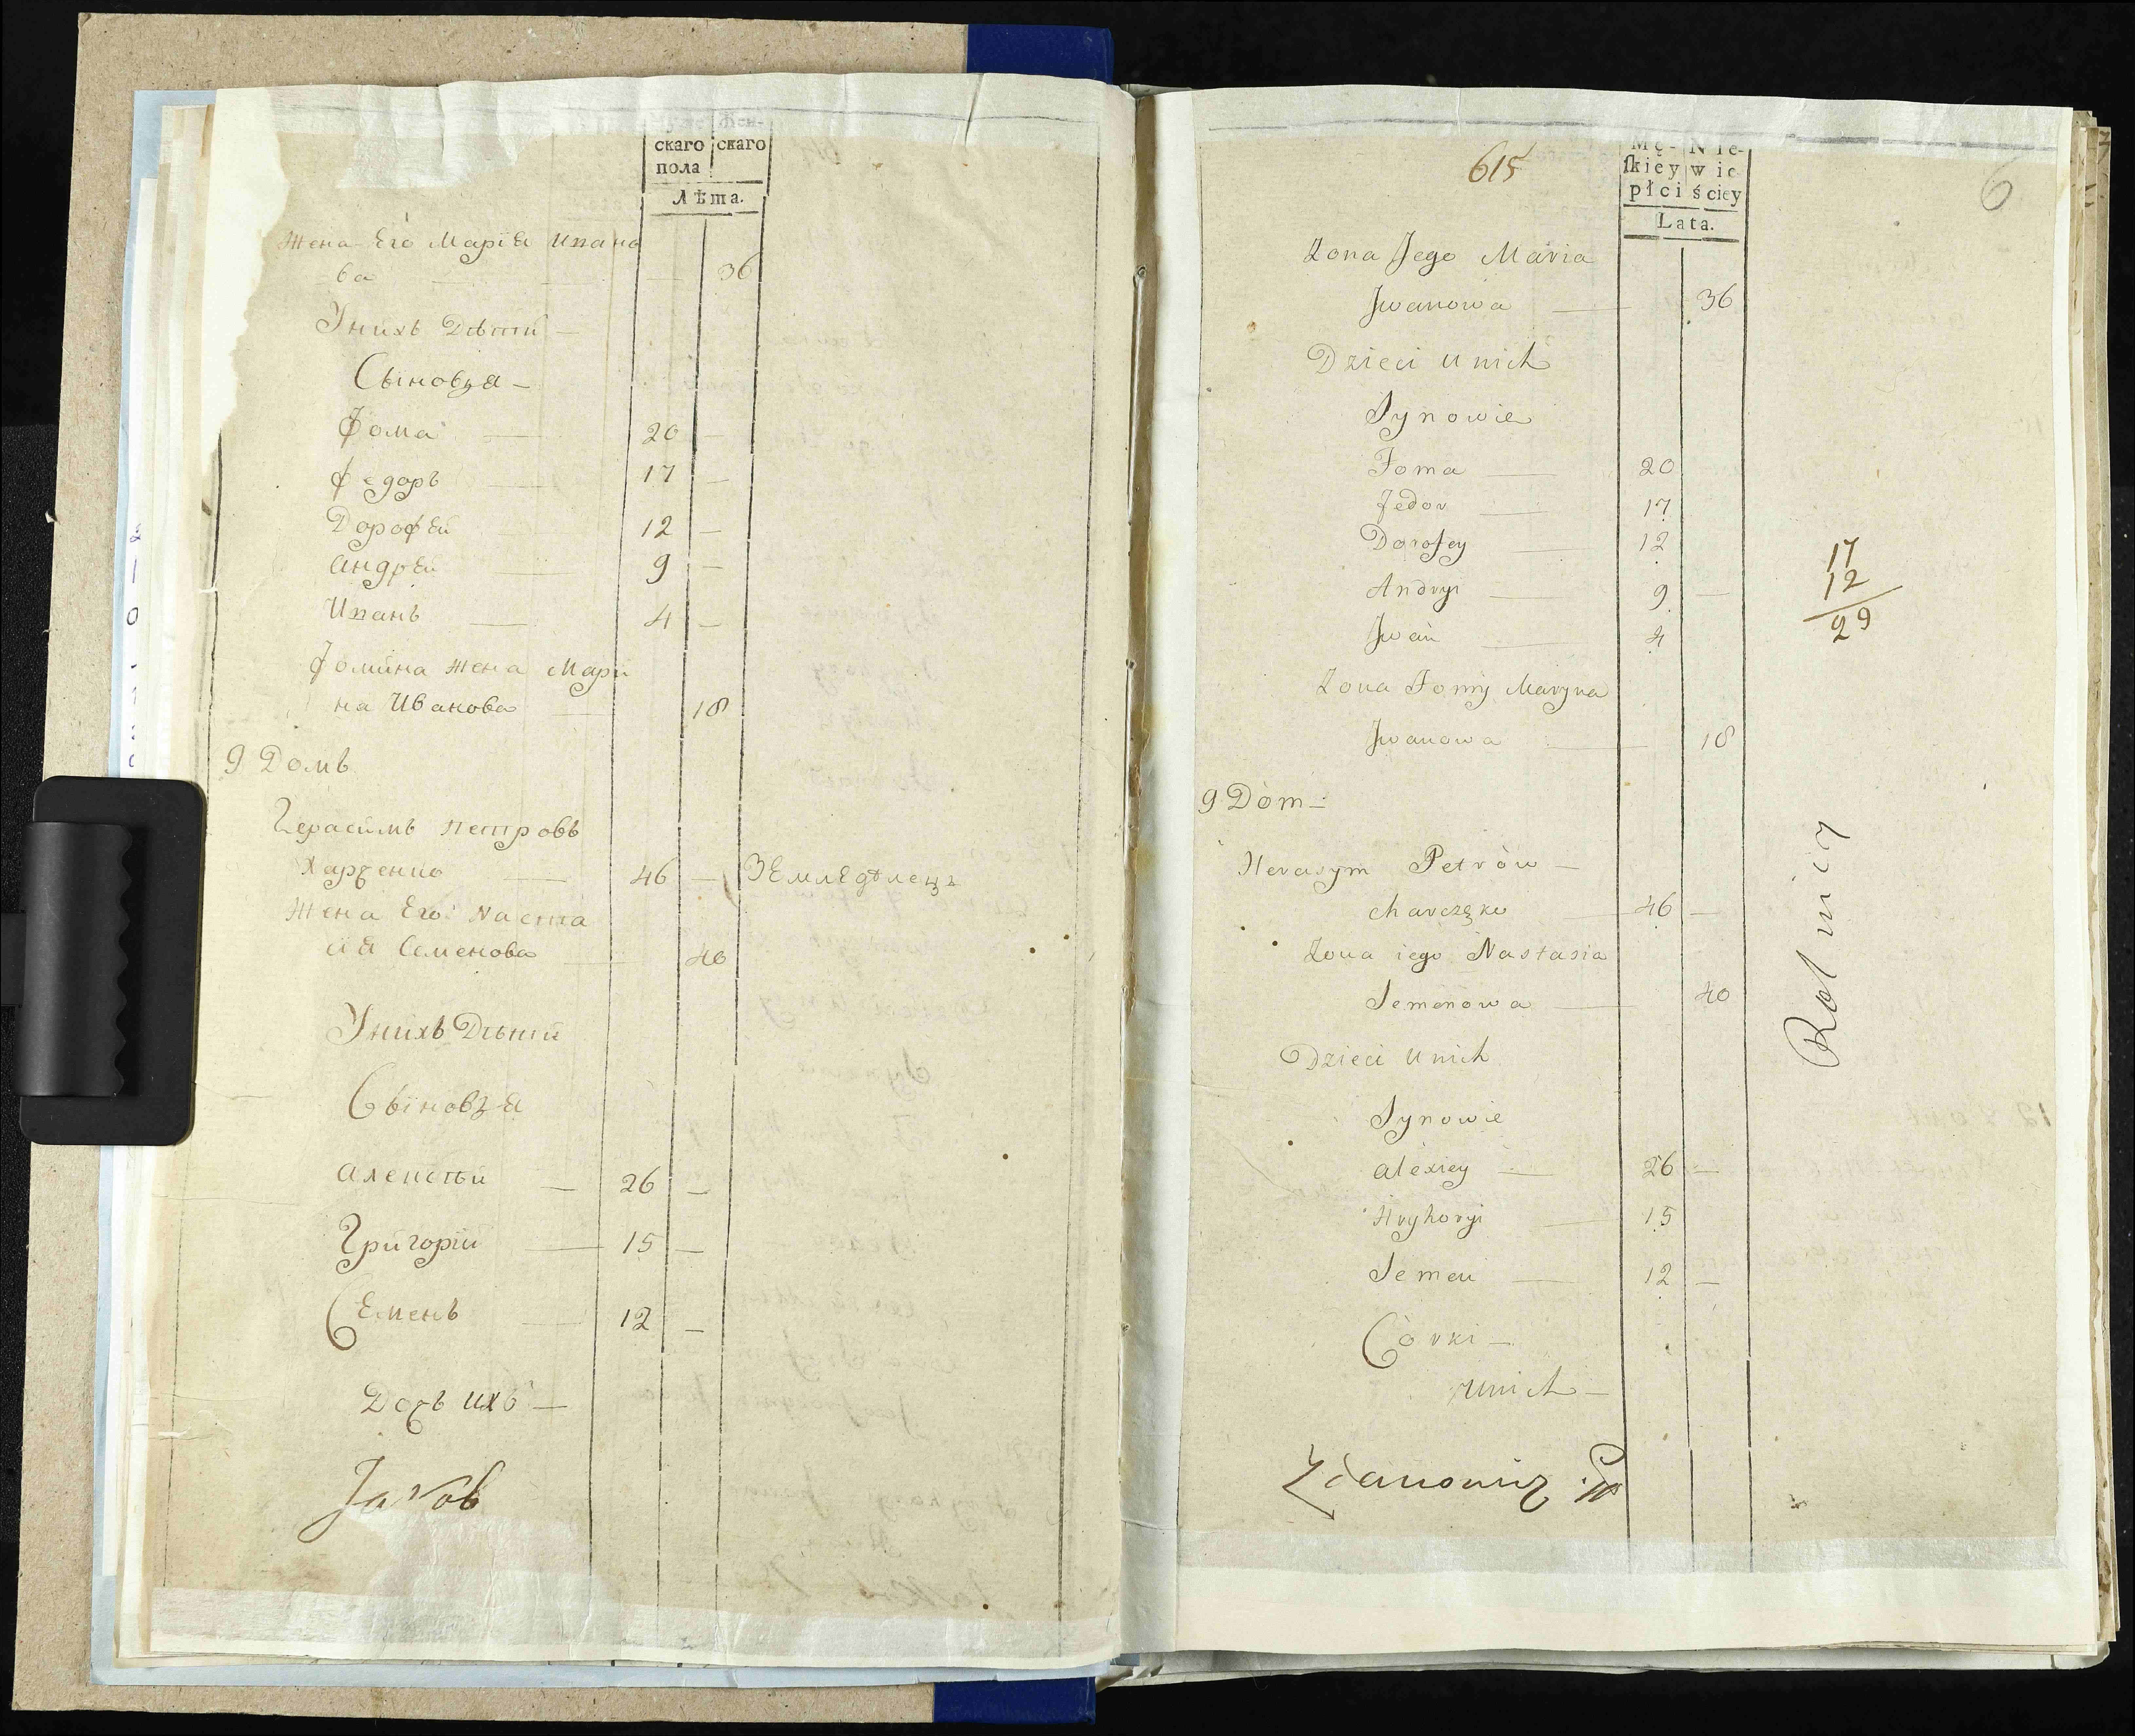 скаго скаго
пола
Лѣта.
Жена Его Марія Ивано
ва — 36
Унихъ Дѣти —
Сыновья —
Фома — 20 —
Федоръ — 17 —
Дорофей 12 —
Андрей — 9 —
Иванъ — 4 —
Фомина жена Мари
на Иванова — 18
9 Домъ
Герасимъ Петровъ
Харченко — 46 — Земледѣлецъ
Жена Его Наста
сія Семенова — 40
Унихъ Дѣти
Сыновья
Алексѣй — 26 —
Григорій — 15 —
Семенъ — 12 —
Дочь ихъ —
Jakob
615
6
Mę- Nie-
skiey wie
płci ściey
Lata.
Zona Jego Maria
Jwanowa — 36
Dzieci u nich
Synowie
Foma — 20
Fedor — 17
Dorofey — 12
Andryi — 9 —
Jwan — 4
Zona Fomy Maryna
Jwanowa — 18
9 Dòm —
Herasym Petrów —
Charczęko — 46 —
Zona iego Nastasia
Semenowa — 40
Dzieci u nich
Synowie
Alexiey — 26 —
Hryhoryi — 15
Semen — 12 —
Córki —
u nich —
17
12
29
Rolnicy